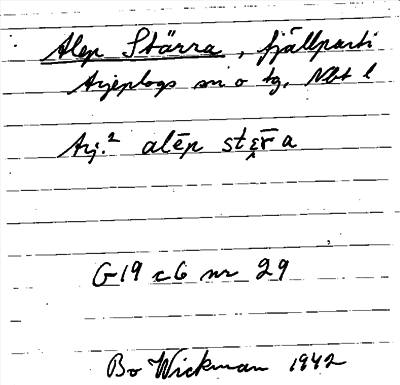 Alep Stärra, fjällparti
Arjeplogs sn o tg, Nbt l
Arj.² alēp stɛ̨r̄a
G19 c6 nr 29
Bo Wickman 1942